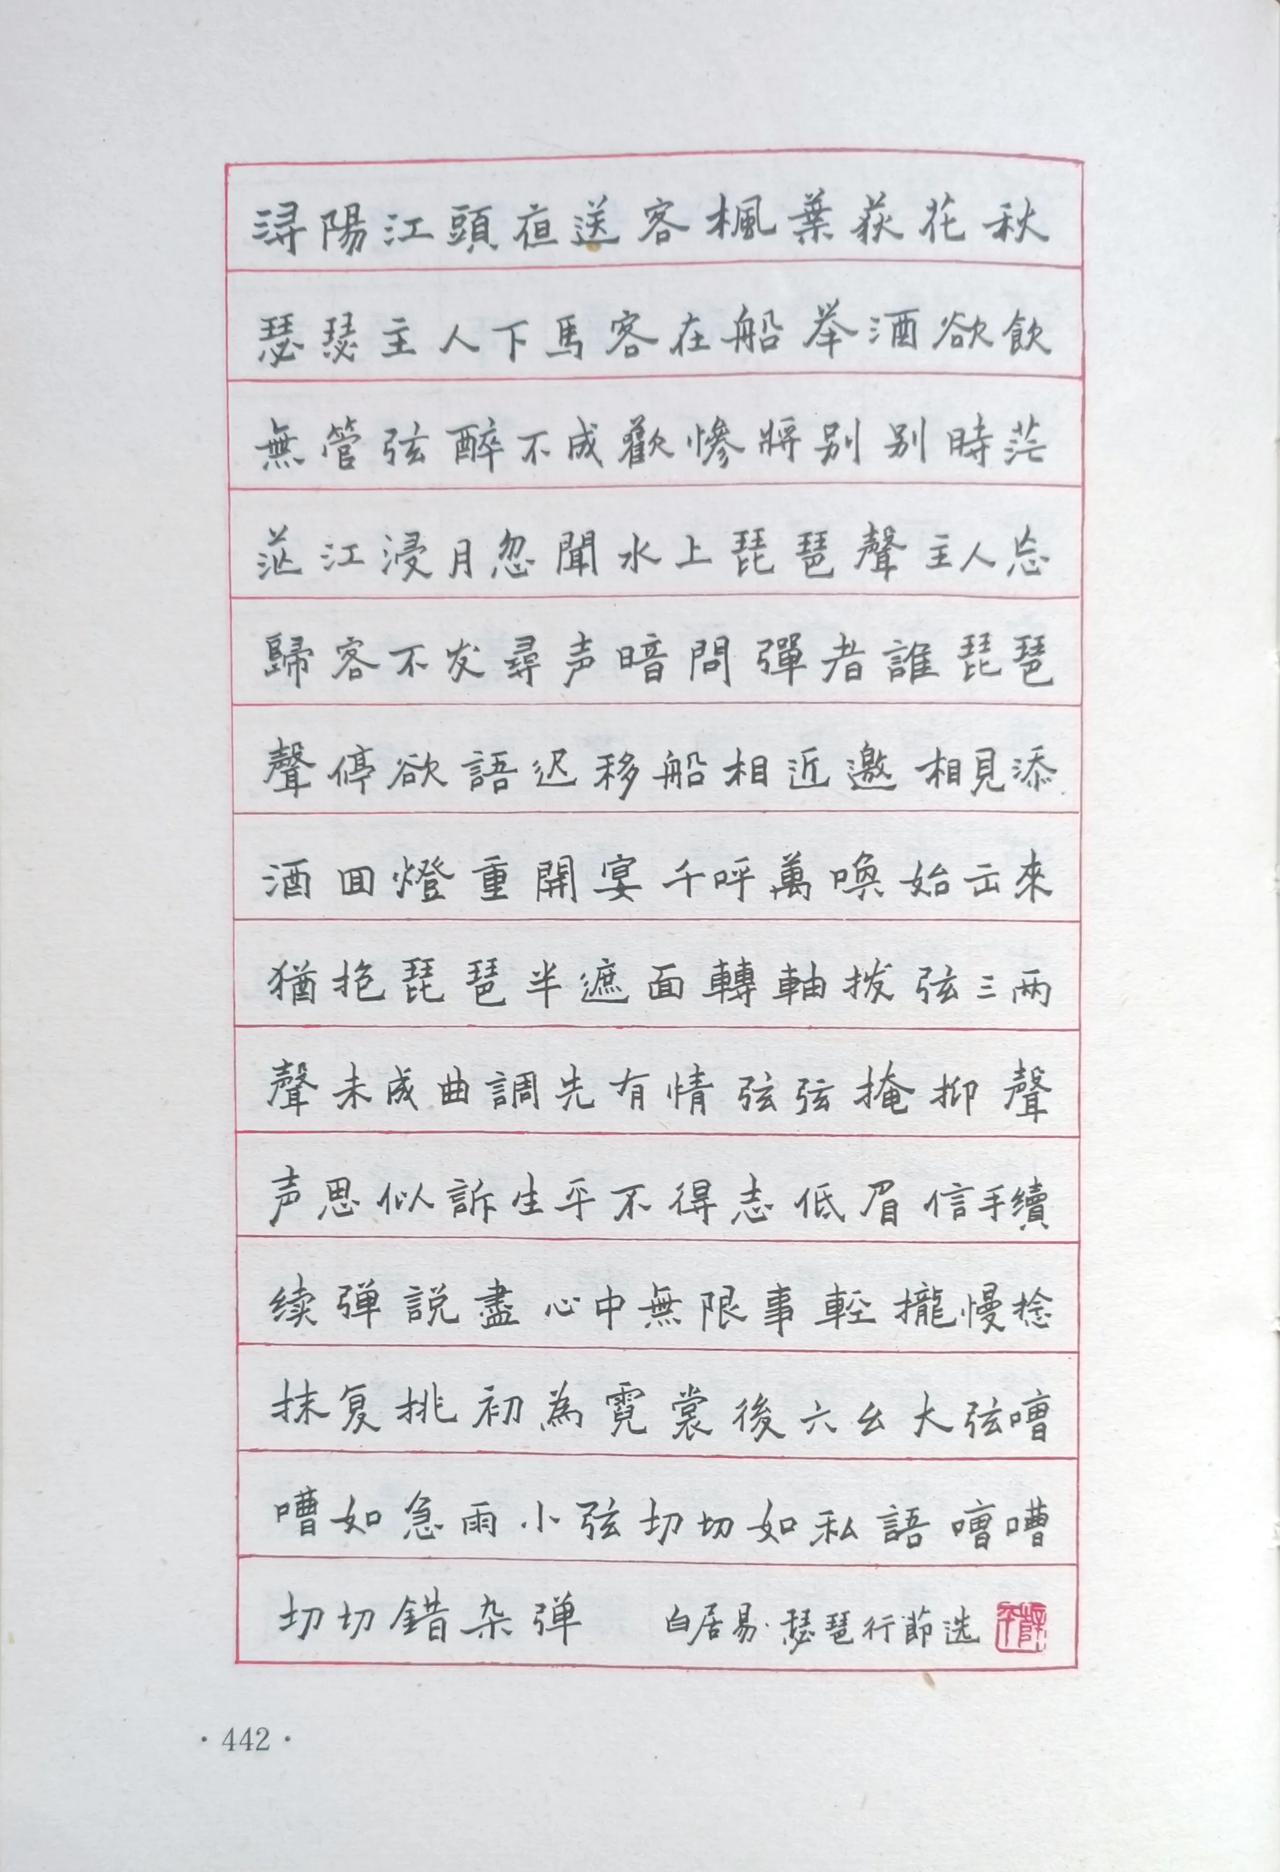 浔陽江頭夜送客楓葉荻花秋
瑟瑟主人下馬客在船举酒欲飲
無管弦醉不成歡慘將别别時茫
茫江浸月忽聞水上琵琶聲主人忘
歸客不发尋声暗問彈者誰琵琶
聲停欲語迟移船相近邀相見添
酒回燈重開宴千呼萬喚始出來
猶抱琵琶半遮面轉軸拨弦三两
聲未成曲調先有情弦弦掩抑聲
声思似訴生平不得志低眉信手續
续弹説盡心中無限事輕攏慢捻
抹复挑初為霓裳後六幺大弦嘈
嘈如急雨小弦切切如私語嘈嘈
切切錯杂弹 白居易·瑟琶行節选
·442·